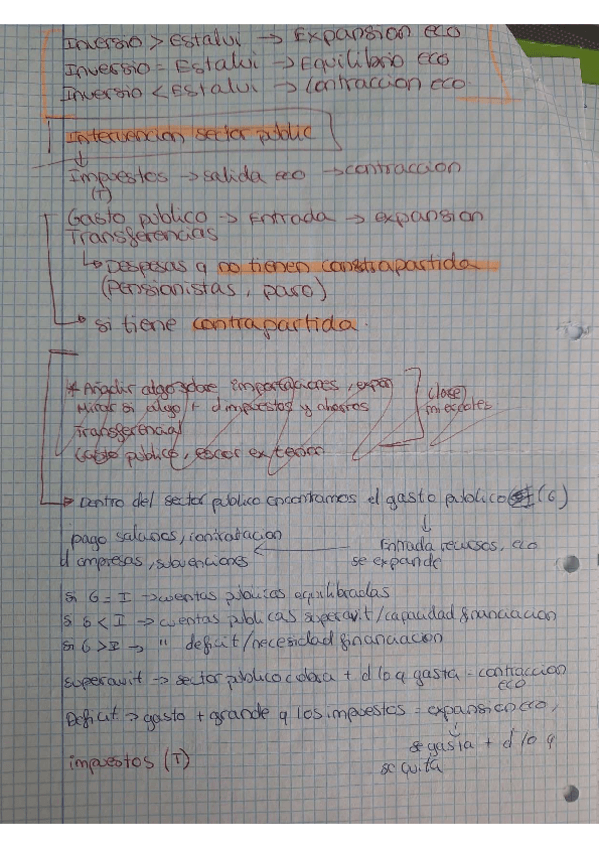 Inversio > Estalvi → Expansion eco
Inversio = Estalvi → Equilibrio eco
Inversio < Estalvi → Contraccion eco
Intervencion sector public
Impuestos → salida eco → contraccion
(T)
Gasto publico → Entrada → expansion
Transferencias
↳ Despesas q no tienen constrapartida
(Pensionistas, paro)
↳ si tiene contrapartida.
* Añadir algo sobre importaciones, expor
Mirar si algo + d impuestos y ahorros
Transferencial
Gasto publico, exterior
clase
miercoles
→ Dentro del sector publico encontramos el gasto publico (G)
pago salarios, contratacion
d empresas, subvenciones
Entrada recursos, eco
se expande
si G = I → cuentas publicas equilibradas
si G < I → cuentas publicas superavit/capacidad financiacion
si G > I → " deficit/necesidad financiacion
superavit → sector publico cobra + d lo q gasta = contraccion
eco
Deficit → gasto + grande q los impuestos = expansion eco,
se gasta + d lo q
se quita
impuestos (T)